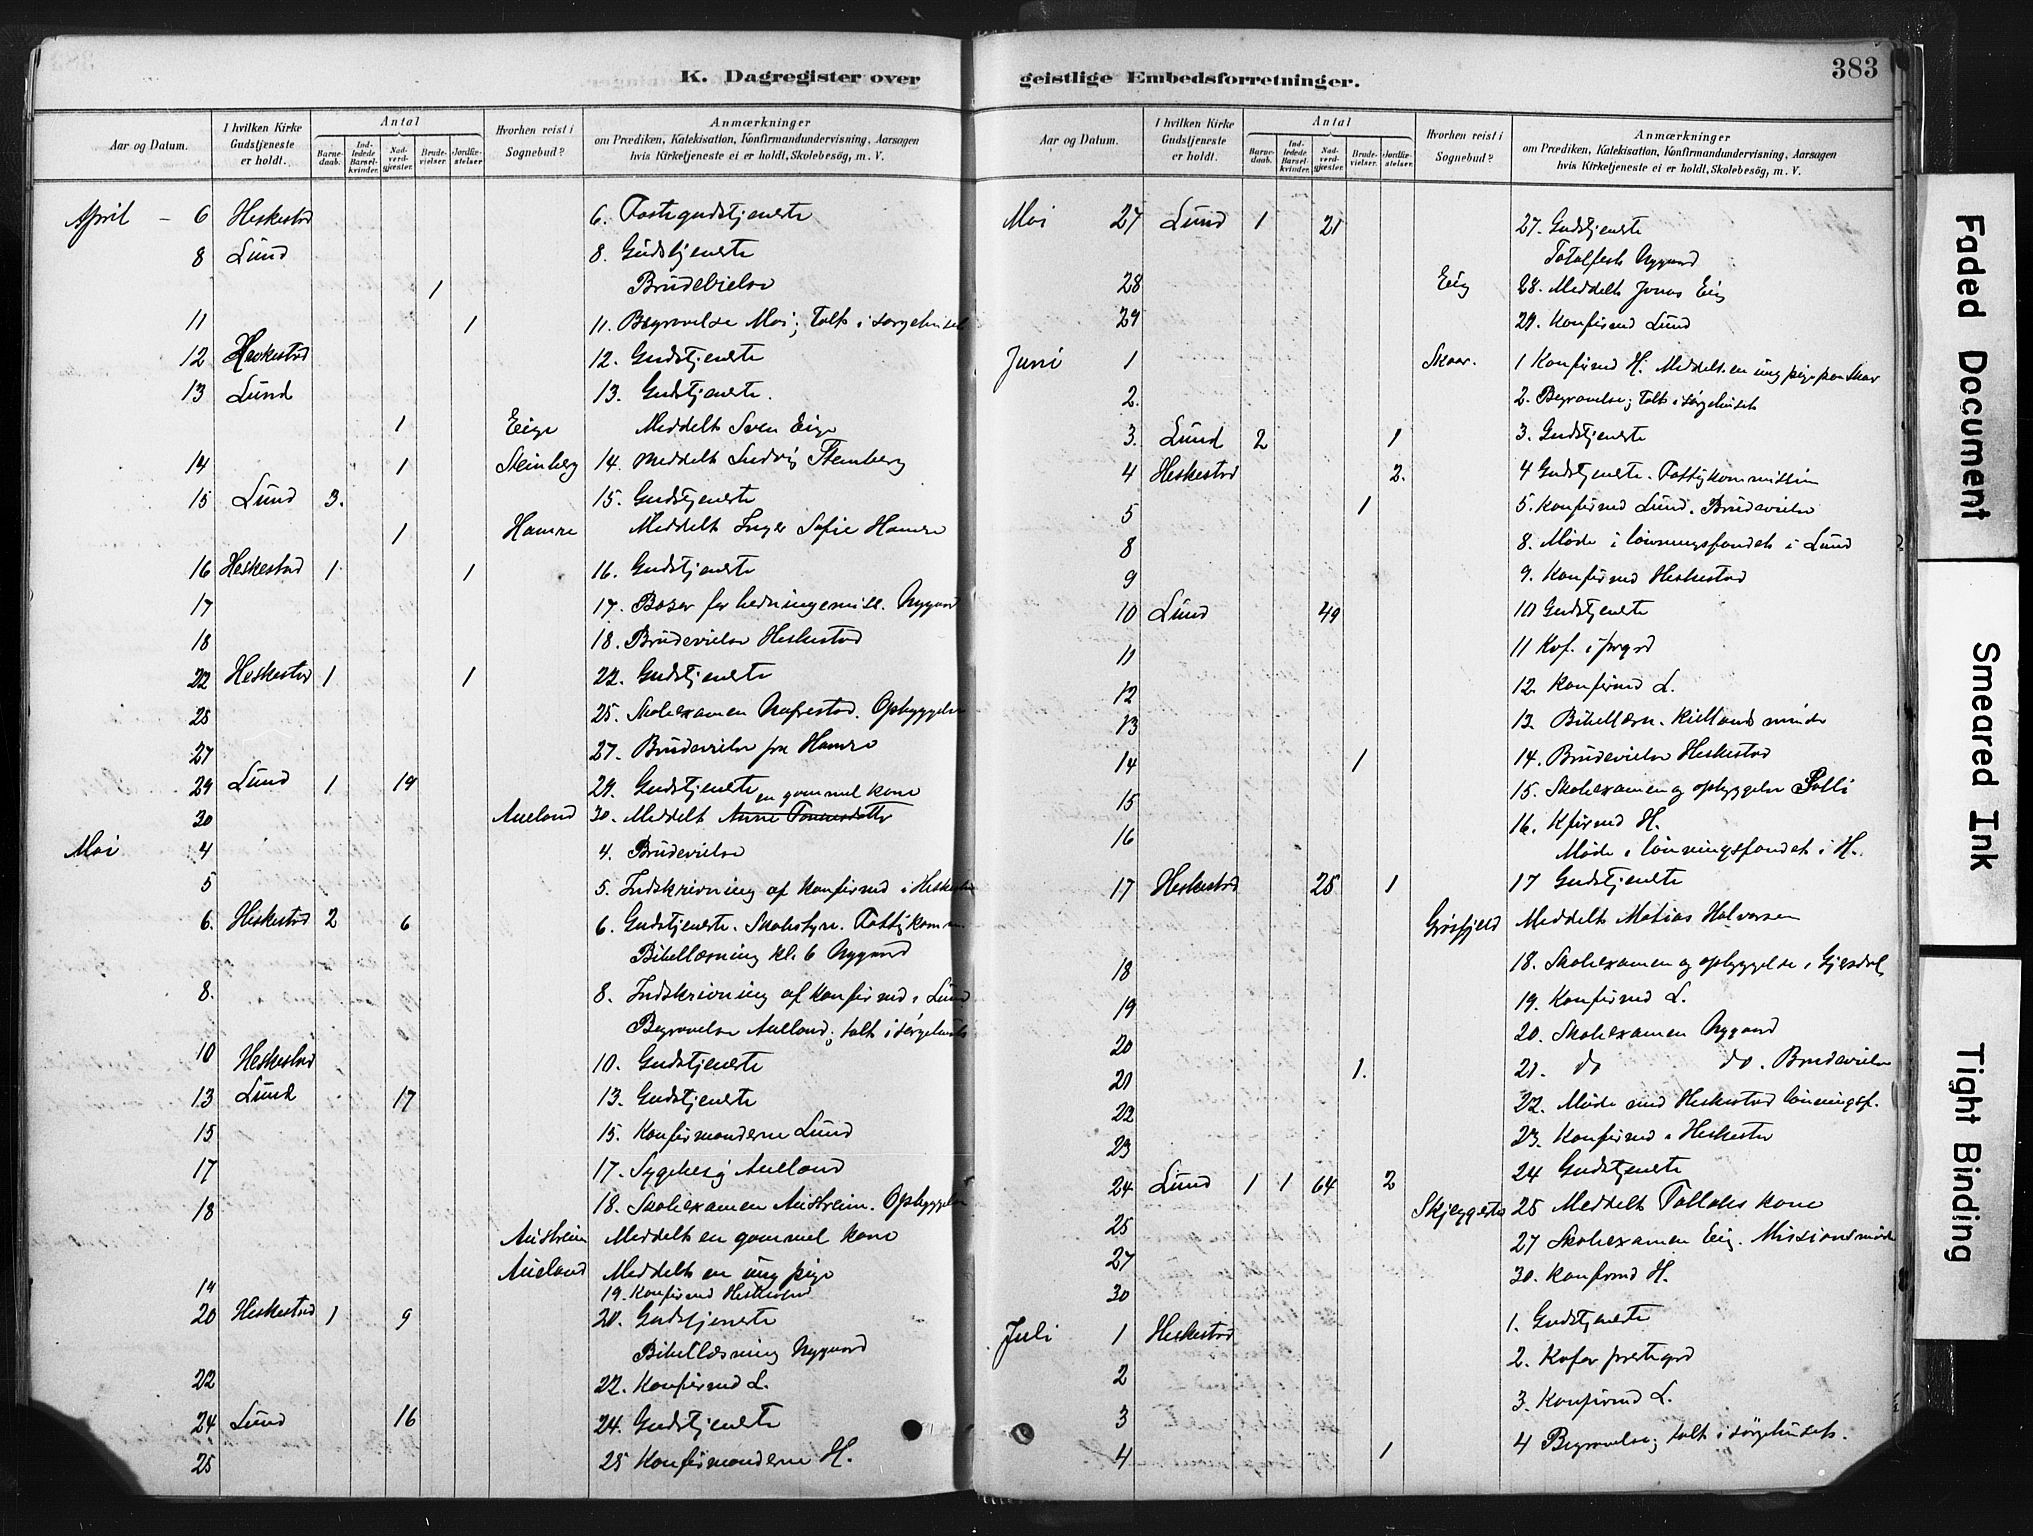 K. Dagregister over
Aar og Datum.
I hvilken Kirke Gudstjeneste er holdt.
Antal
Barnedaab.
Indledede Barselkvinder.
Nadverdgjester.
Brudevielser.
Jordfæstelser.
Hvorhen reist i Sognebud?
Anmærkninger
om Prædiken, Katekisation, Konfirmandundervisning, Aarsagen
hvis Kirketjeneste ei er holdt, Skolebesög, m. V.
April - 6 Heskestad 6. Fastegudstjeneste
8 Lund 8. Gudstjeneste
1 Brudevielse
11 1 11. Begravelse Moi; talt i sørgehuset
12 Heskestad 12. Gudstjeneste
13 Lund 13. Gudstjeneste.
1 Eige Meddelt Sven Eige
14 1 Steinberg 14. Meddelt Ludvig Stenberg
15 Lund 3. 15. Gudstjeneste
1 Hamre Meddelt Inger Sofie Hamre
16 Heskestad 1 1 16. Gudstjeneste
17 17. Basar for hedningemiss. Nygaard
18 18. Brudevielse Heskestad
22 Heskestad 1 1 22. Gudstjeneste
25 25. Skoleexamen Nafrestad. Opbyggelse
27 27. Brudevielse fra Hamre
29 Lund 1 19 29. Gudstjeneste
en gammel kone
30 Aueland 30. Meddelt Anne Tønnesdatter
Mai 4 4. Brudevielse
5 5. Indskrivning af konfirmd i Heskestad
6. Heskestad 2 6 6. Gudstjeneste. Skolestyre. Fattigkomm.
Bibellæsning kl. 6 Nygaard
8. 8. Indskrivning af konfirmd i Lund
Begravelse Aueland; talt i sørgehuset
10 Heskestad 10. Gudstjeneste
13 Lund 17 13. Gudstjeneste
15 15. Konfirmanderne Lund
17 17. Sygebesøg Aueland
18 18. Skoleexamen Austreim. Opbyggelse
Austreim Meddelt en gammel kone
Aueland Meddelt en ung pige
19 19. Konfirmd Heskestad
20 Heskestad 1 9 20. Gudstjeneste
Bibellæsning Nygaard
22 22. Konfirmd L.
24 Lund 16 24. Gudstjeneste
25 25 Konfirmanderne H.
geistlige Embedsforretninger.
383
Aar og Datum.
I hvilken Kirke Gudstjeneste er holdt.
Antal
Barnedaab.
Indledede Barselkvinder.
Nadverdgjester.
Brudevielser.
Jordfæstelser.
Hvorhen reist i Sognebud?
Anmærkninger
om Prædiken, Katekisation, Konfirmandundervisning, Aarsagen
hvis Kirketjeneste ei er holdt, Skolebesög, m. V.
Mai 27 Lund 1 21 27. Gudstjeneste
Totalfest Nygaard
28 Eig 28. Meddelt Jonas Eig
29 29. Konfirmd Lund
Juni 1 Skaar. 1 Konfirmd H. Meddelt en ung pige paa Skaar
2. 2. Begravelse; talt i sørgehuset
3. Lund 2 1 3. Gudstjeneste
4 Heskestad 2. 4 Gudstjeneste. Fattigkommission
5 1 5. Konfirmd Lund. Brudevielse
8 8. Møde i lønningsfondet i Lund
9 9. Konfirmd Heskestad
10 Lund 49 10 Gudstjeneste
11 11 Kof. i prgrd
12 12. Konfirmd L.
13 13. Bibellæsn. Kiellands minde
14 1 14. Brudevielse Heskestad
15 15. Skoleexamen og opbyggelse Salli
16 16. Kfirmd H.
Møde i lønningsfondet i H.
17 Heskestad 25 1 17 Gudstjeneste
Grøsfjeld Meddelt Matias Halvorsen
18 18. Skoleexamen og opbyggelse i Gjesdal
19 19. Konfirmd L.
20 20. Skoleexamen Nygaard
21 1. 21. do do. Brudevielse
22 22. Møde med Heskestad lønningsf.
23 23. Konfirmd i Heskestad
24 Lund 1 1 64 2 24 Gudstjeneste
25 Skjeggestad 25 Meddelt Tallaks kone
27 27 Skoleexamen Eig. Missionsmøde
30 30. Konfirmd H.
Juli 1 Heskestad 1. Gudstjeneste
2 2. Kofar prestegrd
3 3. Konfirmd L.
4 1 4 Begravelse; talt i sørgehuset.
Faded Document
Smeared Ink
Tight Binding